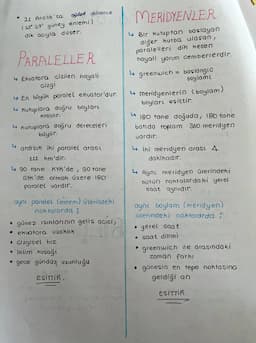 21 Aralık ta
(23° 27' güney enlemi)
dik açıyla düşer.
PARALELLER
Ekvatora çizilen hayali
çizgi
En büyük paralel ekvator'dur.
Kutuplara doğru boyları
kısalır.
Kutuplara doğru dereceleri
büyür.
Ardışık iki paralel arası
111 km'dir.
90 tane KYK'de, 90 tane
GYK'de olmak üzere 180
paralel vardır.
aynı paralel (enlem) üzerindeki
noktalarda;
güneş ışınlarının geliş açısı
ekvatora uzaklık
çizgisel hız
iklim kuşağı
gece gündüz uzunluğu
EŞİTTİR.
MERİDYENLER
Bir kutuptan başlayan
diğer kutba ulaşan,
paralelleri dik kesen
hayali yarım çemberlerdir.
greenwich = başlangıç
boylamı
meridyenlerin (boylam)
boyları eşittir.
180 tane doğuda, 180 tane
batıda toplam 360 meridyen
vardır.
iki meridyen arası 4
dakikadır.
Aynı meridyen üzerindeki
bütün noktalardaki yerel
saat aynıdır.
aynı boylam (meridyen)
üzerindeki noktalarda;
yerel saat
saat dilimi
greenwich ile arasındaki
zaman farkı
güneşin en tepe noktasına
geldiği an
EŞİTTİR